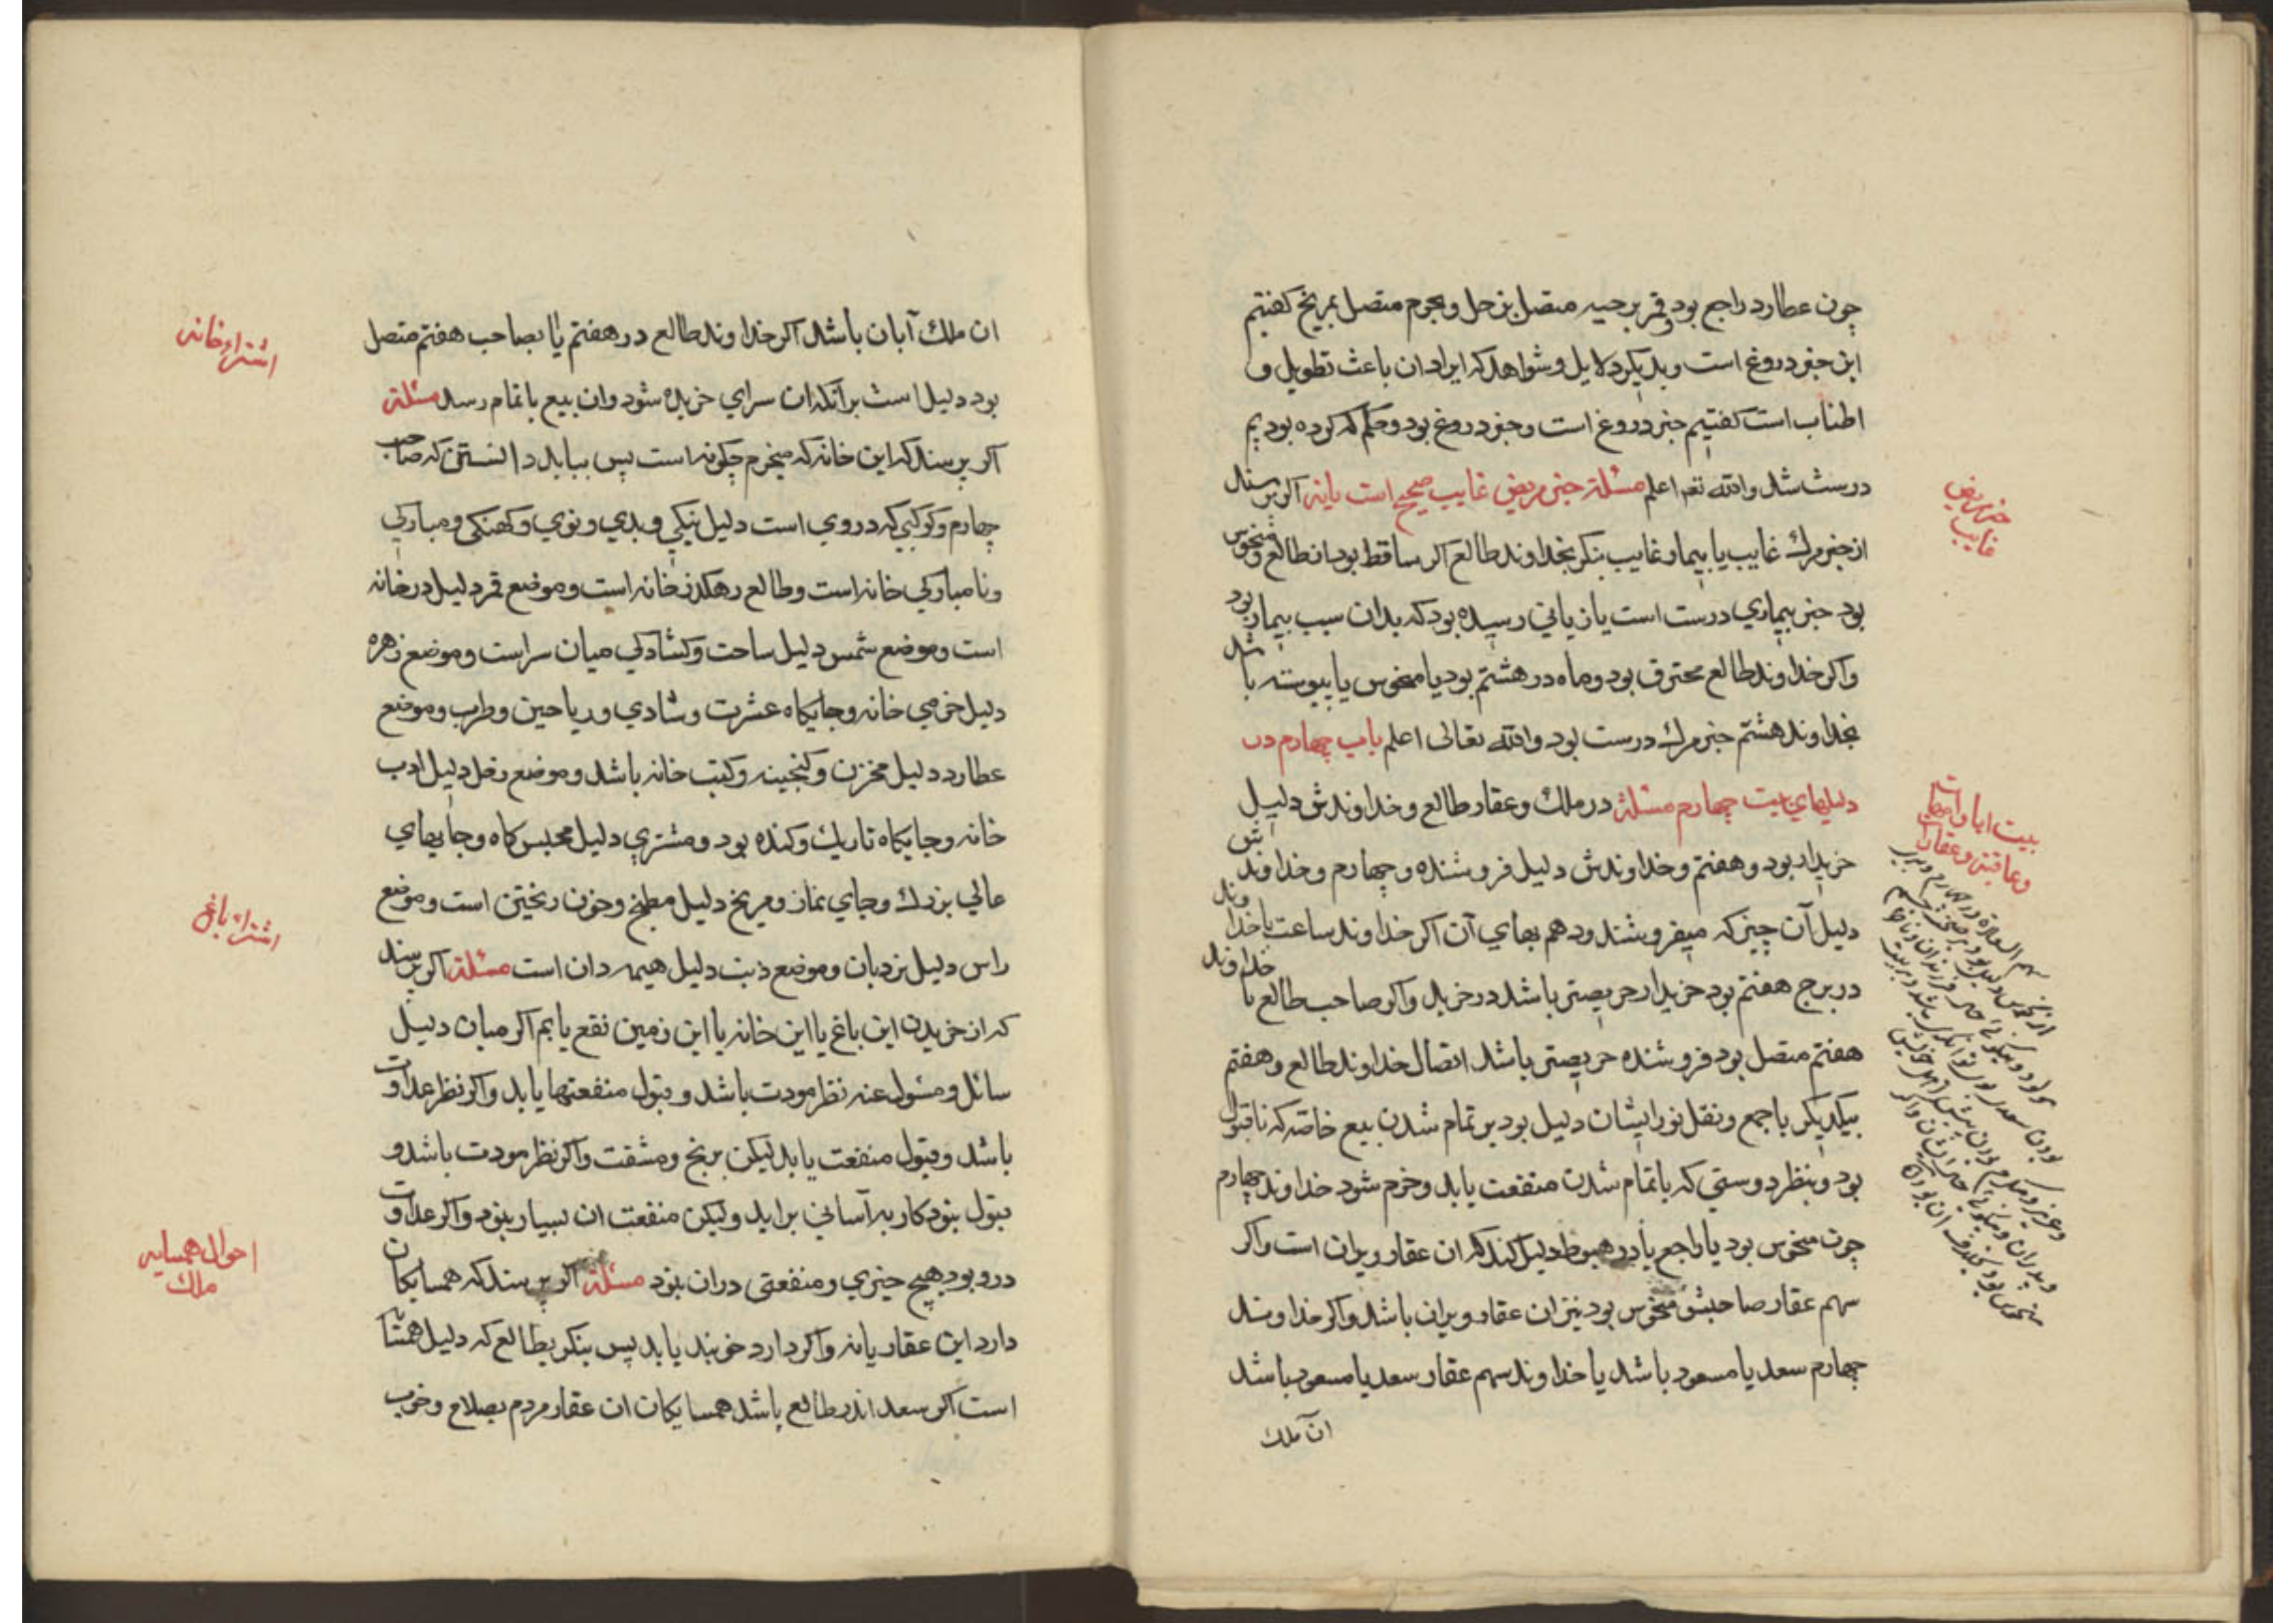 چون عطارد راجع بود و قمر برجیه متصل بزحل و بجرم متصل بمریخ کفتیم
این خبر دروغ است و بدیکر دلایل و شواهد که ایراد ان باعث تطویل و
اطناب است کفتیم خبر دروغ است و خبر دروغ بود و حکم که کرده بودیم
درست شد والله تعم اعلم مسئلة خبر مریض غایب صحیح است یا نه اکر پرسند
از خبر مرك غایب یا بیمار غایب بنکر بخداوند طالع اکر ساقط بود از طالع و منحوس
بود خبر بیماری درست است یا زیانی رسیده بود که بدان سبب بیمار بود
واکر خداوند طالع محترق بود و ماه در هشتم بود یا منحوس یا پیوسته باشد
بخداوند هشتم خبر مرك درست بود والله تعالی اعلم باب چهارم در
دلیلهای بیت چهارم مسئلة در ملك و عقار طالع و خداوندش دلیل
خریدار بود و هفتم و خداوندش دلیل فروشنده و چهارم و خداوندش
دلیل آن چیز که میفروشند و دهم بهای آن اکر خداوند ساعت یا خداوند
در برج هفتم بود خریدار حریصتر باشد در خرید واکر صاحب طالع با خداوند
هفتم متصل بود فروشنده حریصتر باشد اتصال خداوند طالع و هفتم
بیکدیکر یا جمع و نقل نور ایشان دلیل بود بر تمام شدن بیع خاصه که با قبول
بود و بنظر دوستی که با تمام شدن منفعت یابد و خرم شود خداوند چهارم
چون منحوس بود یا راجع یا در هبوط دلیل کند که ان عقار ویران است واکر
سهم عقار صاحبش منحوس بود نیز ان عقار ویران باشد واکر خداوند
چهارم سعد یا مسعود باشد یا خداوند سهم عقار سعد یا مسعود باشد
ان ملك
خبر مریض
غایب
بیت ابا و امهات
و عاقبت و عقار
ان ملك آبان باشد اکر خداوند طالع در هفتم یا بصاحب هفتم متصل
بود دلیل است بر آنکه ان سرای خریده شود و ان بیع با تمام رسد مسئلة
اکر پرسند که این خانه که میخرم چکونه است پس بباید دانستن که صاحب
چهارم و کوکبی که در وی است دلیل نیکی و بدی و نوی و کهنکی و مبارکی
و نامبارکی خانه است و طالع رهکذر خانه است و موضع قمر دلیل در خانه
است و موضع شمس دلیل ساحت و کشادکی میان سراست و موضع زهره
دلیل خرمی خانه و جایکاه عشرت و شادی و ریاحین و طرب و موضع
عطارد دلیل مخزن و کنجینه و کتب خانه باشد و موضع زحل دلیل ادب
خانه و جایکاه تاریك و کنده بود و مشتری دلیل مجلس کاه و جایهای
عالی بزرك و جای نماز و مریخ دلیل مطبخ و خون ریختن است و موضع
راس دلیل نردبان و موضع ذنب دلیل هیمه دان است مسئلة اکر پرسند
که از خریدن این باغ یا این خانه یا این زمین نفع یابم اکر میان دلیل
سائل و مسئول عنه نظر مودت باشد و قبول منفعتها یابد واکر نظر عداوت
باشد و قبول منفعت یابد لیکن برنج و مشقت واکر نظر مودت باشد و
قبول نبود کار به آسانی براید ولیکن منفعت ان بسیار نبود واکر عداوت
در و بود هیچ چیزی و منفعتی دران نبود مسئلة اکر پرسند که همسایکان
دارد این عقار یا نه واکر دارد خوبند یا بد پس بنکر بطالع که دلیل
است اکر سعد اندر طالع باشد همسایکان ان عقار مردم بصلاح و خوب
اشتراء خانه
اشتراء باغ
احوال همسایه
ملك